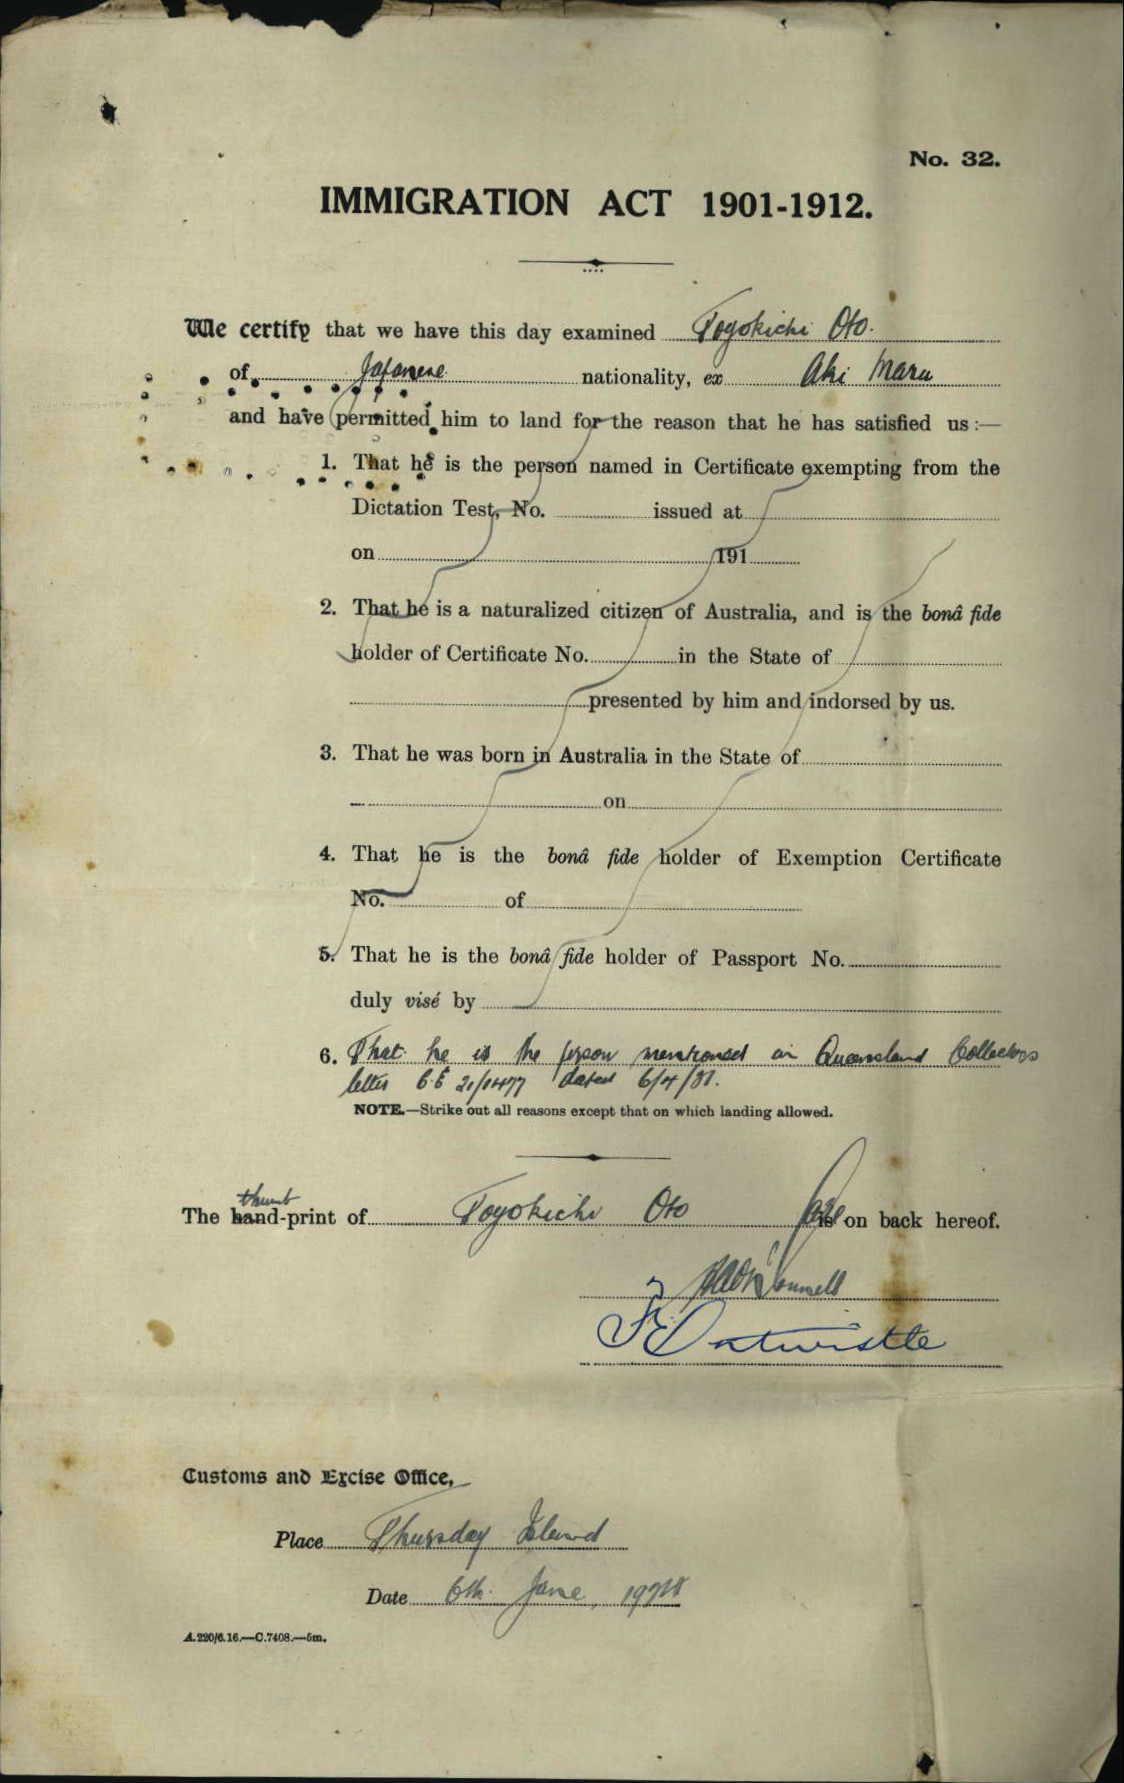 No. 32.
IMMIGRATION ACT 1901-1912.
We certify that we have this day examined Toyokichi Oto.
of Japanese nationality, ex Aki Maru
and have permitted him to land for the reason that he has satisfied us :—
1. That he is the person named in Certificate exempting from the
Dictation Test, No. issued at
on 191
2. That he is a naturalized citizen of Australia, and is the bonâ fide
holder of Certificate No. in the State of
presented by him and indorsed by us.
3. That he was born in Australia in the State of
on
4. That he is the bonâ fide holder of Exemption Certificate
No. of
5. That he is the bonâ fide holder of Passport No.
duly visé by
6. That he is the person mentioned in Queensland Collectors
letter dated 6/4/31.
NOTE.—Strike out all reasons except that on which landing allowed.
thumb
The hand-print of Toyokichi Oto is on back hereof.
Customs and Excise Office,
Place Thursday Island
Date 6th June,
A.220/6.16.—C.7408.—5m.